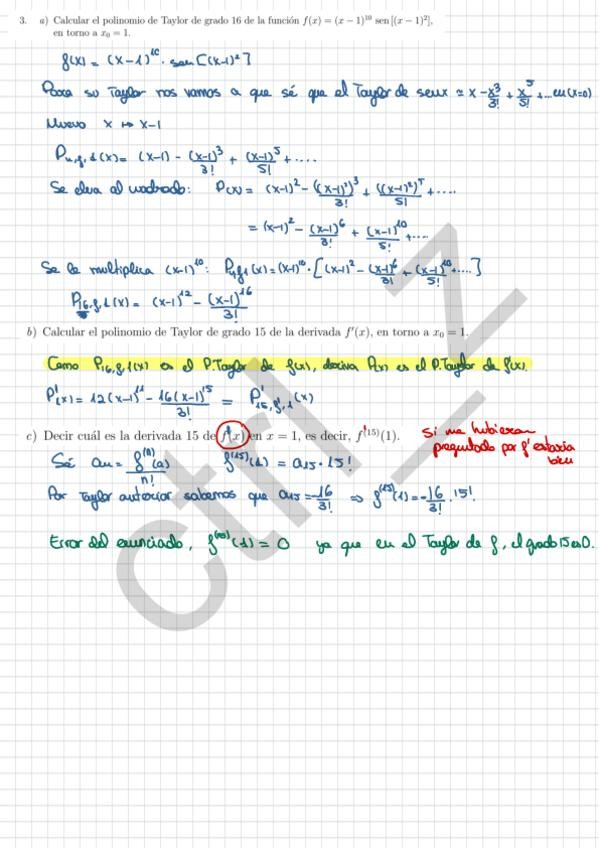 3. a) Calcular el polinomio de Taylor de grado 16 de la función f(x) = (x − 1)¹⁰ sen [(x − 1)²],
en torno a x₀ = 1.
f(x) = (x-1)¹⁰ · sen [(x-1)²]
Para su Taylor nos vamos a que sé que el Taylor de senx ≃ x - x³/3! + x⁵/5! + ... en (x=0)
Nuevo x ↦ x-1
Pn,f,1(x) = (x-1) - (x-1)³/3! + (x-1)⁵/5! + ....
Se eleva al cuadrado: P(x) = (x-1)² - ((x-1)²)³/3! + ((x-1)²)⁵/5! + ....
= (x-1)² - (x-1)⁶/3! + (x-1)¹⁰/5! + ....
Se le multiplica (x-1)¹⁰: Pn,f,1(x) = (x-1)¹⁰ · [(x-1)² - (x-1)⁶/3! + (x-1)¹⁰/5! + ....]
P16,f,1(x) = (x-1)¹² - (x-1)¹⁶/3!
b) Calcular el polinomio de Taylor de grado 15 de la derivada f′(x), en torno a x₀ = 1.
Como P16,f,1(x) es el P.Taylor de f(x), deriva P(x) es el P.Taylor de f'(x).
P'(x) = 12(x-1)¹¹ - 16(x-1)¹⁵/3! = P'15,f',1(x)
c) Decir cuál es la derivada 15 de f'(x) en x = 1, es decir, f'⁽¹⁵⁾(1).
Si me hubieran
preguntado por f' estaría
bien
Sé an = f⁽ⁿ⁾(a)/n! f⁽¹⁵⁾(1) = a15 · 15!
Por Taylor anterior sabemos que a15 = -16/3! ⇒ f⁽¹⁵⁾(1) = -16/3! · 15!
Error del enunciado, f⁽¹⁵⁾(1) = 0 ya que en el Taylor de f, el grado 15 es 0.
ctrl_z